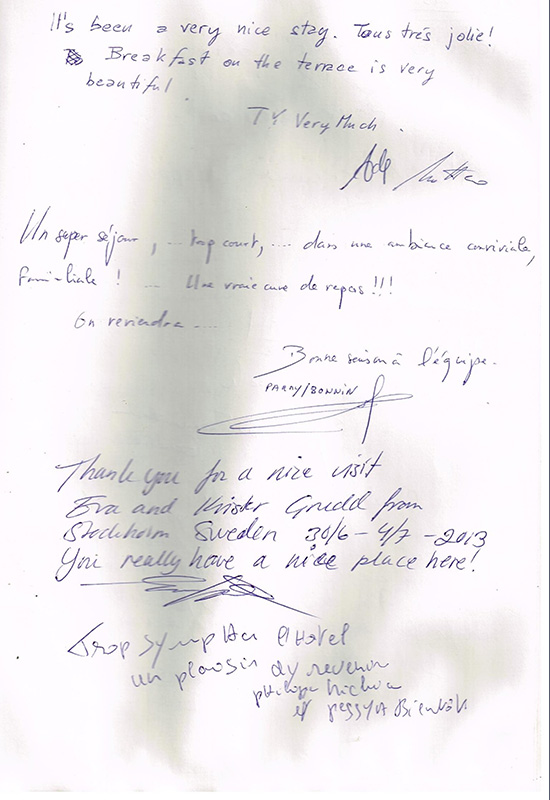 It's been a very nice stay. Tous très jolie!
Breakfast on the terrace is very
beautiful
TY Very Much.
Un super séjour, ... trop court, .... dans une ambiance conviviale,
familiale ! ... Une vraie cure de repos !!!
On reviendra ....
Bonne saison à l'équipe.
PARRY/BONNIN
Thank you for a nice visit
Eva and Krister Gredd from
Stockholm Sweden 30/6 - 4/7 - 2013
You really have a nice place here!
Trop sympha l'Hotel
un plaisir dy revenir
et peggy A Bientôt